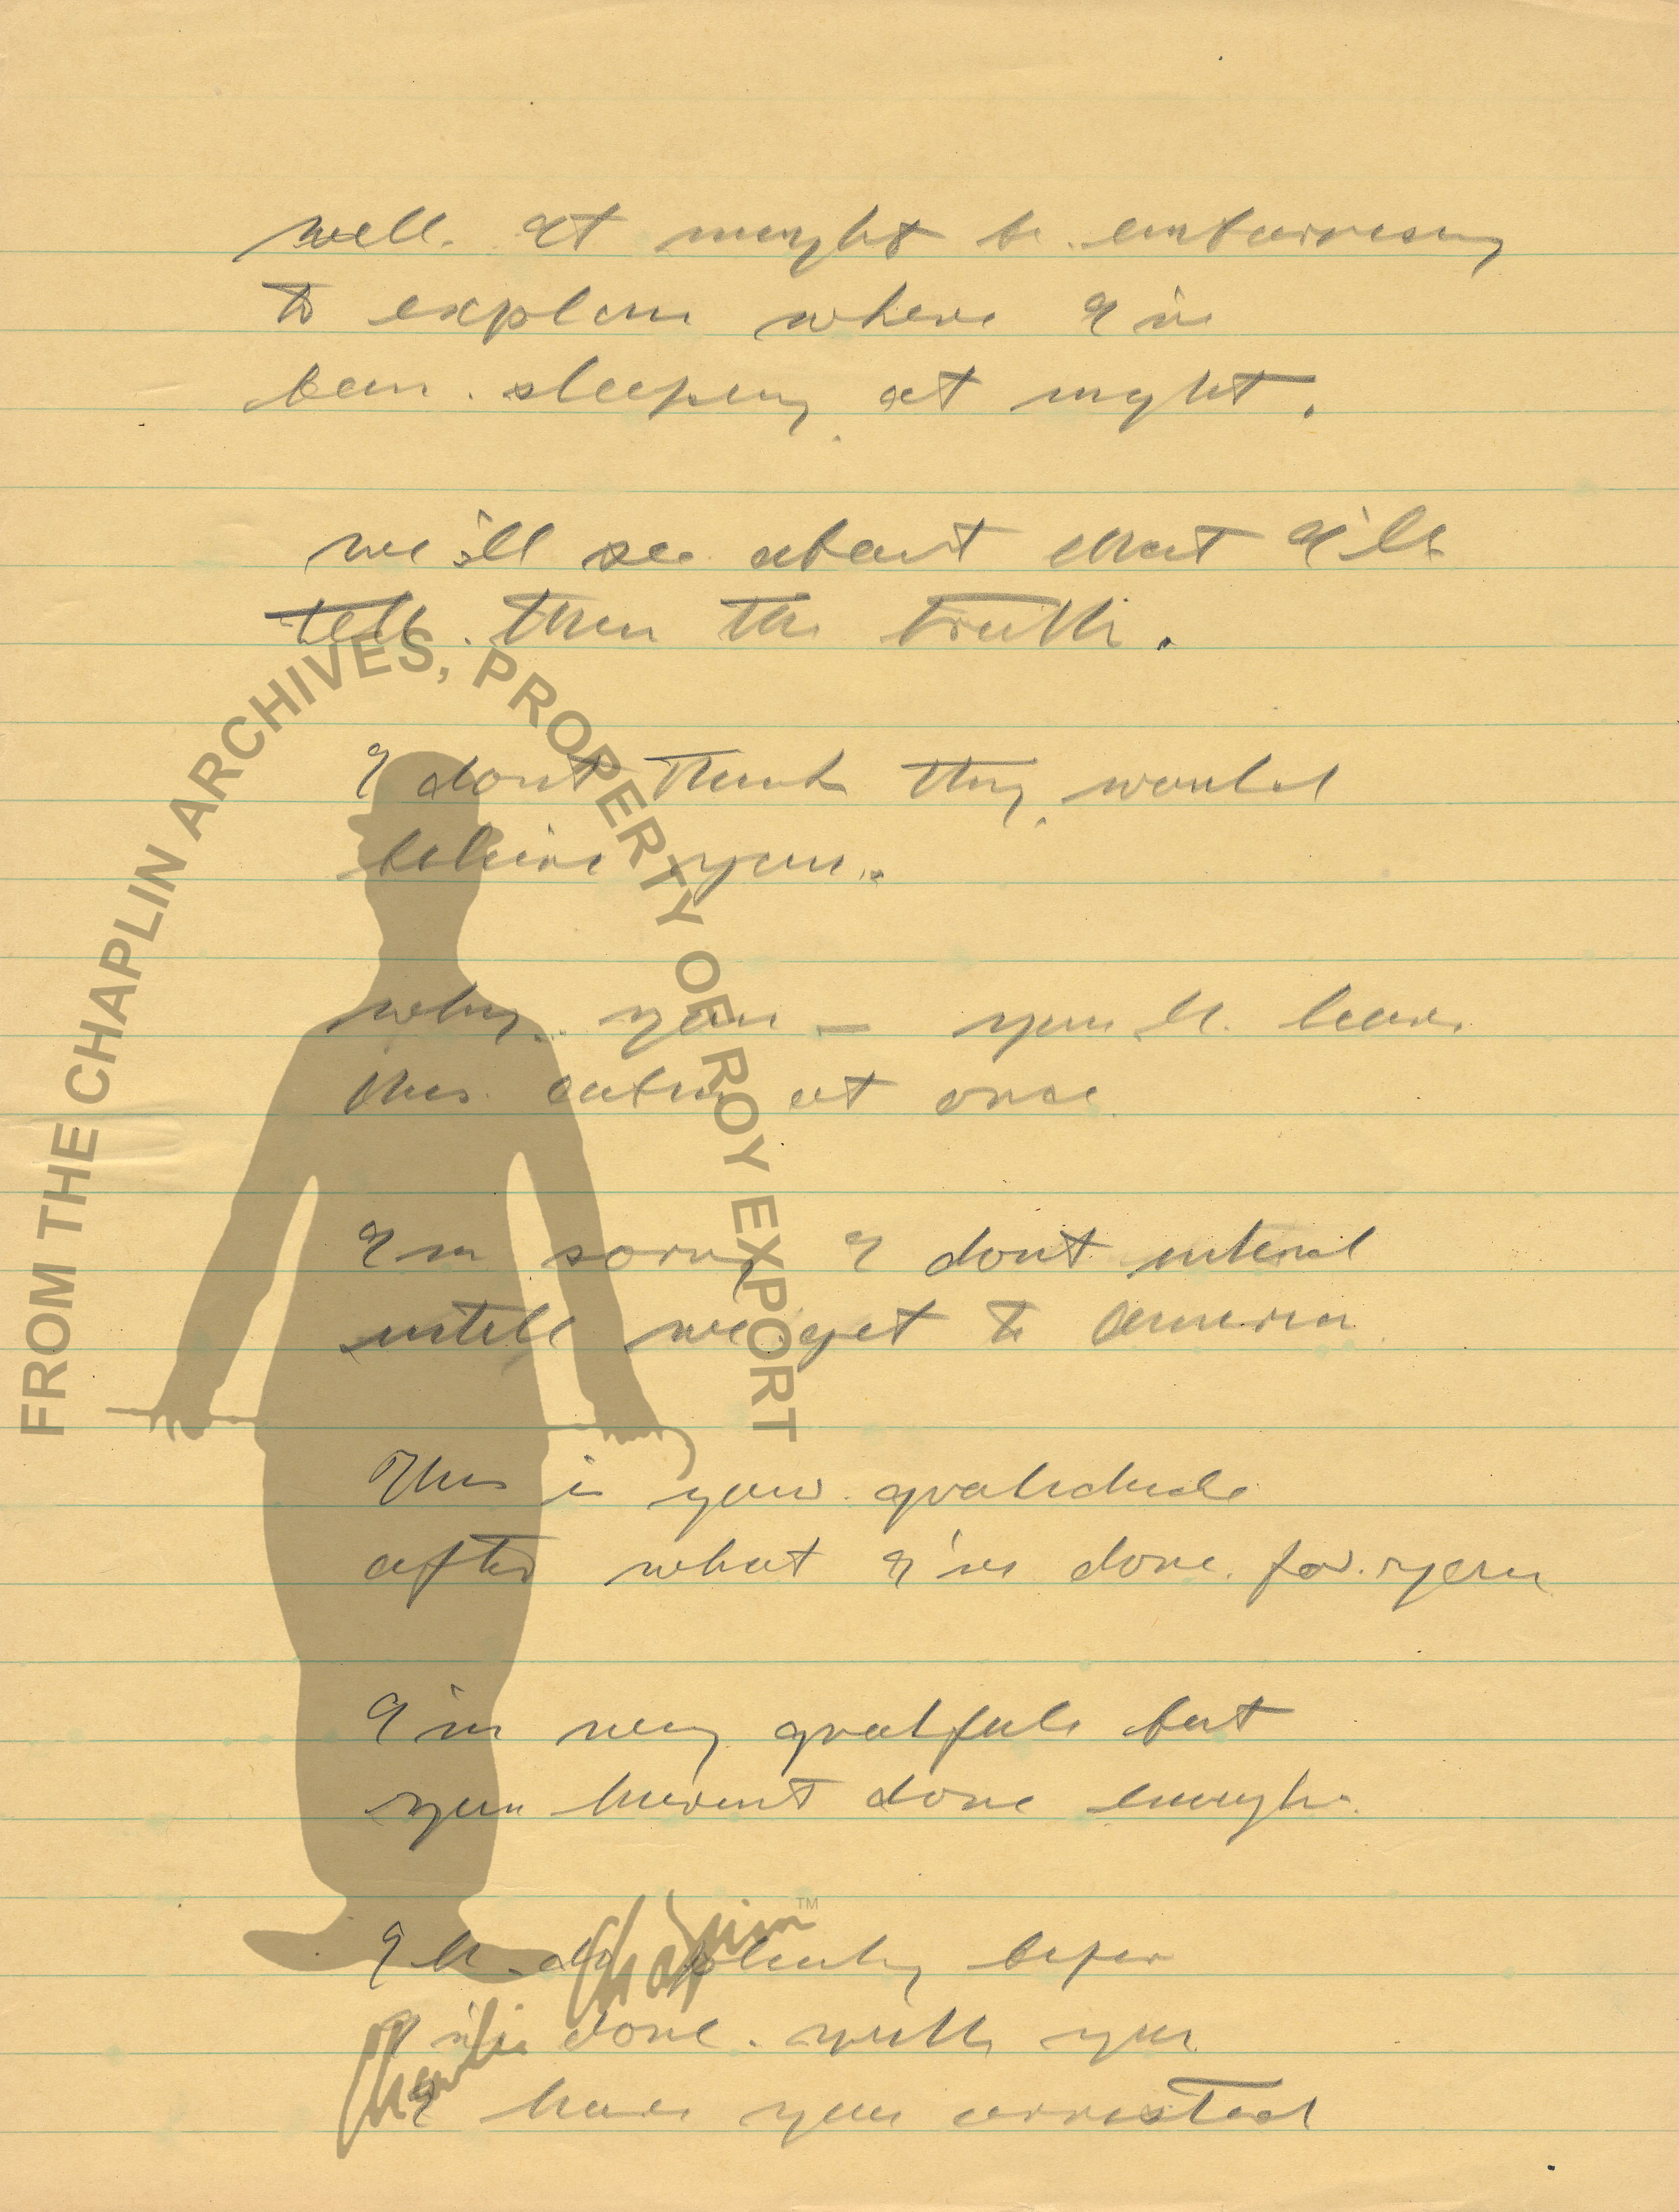 well. It might be embarresing
to explain where I've
been sleeping at night.
we'ill see about that I'll
tell them the truth.
I dont think they would
believe you..
why.. you — you'll leave
this cabin at once
I'm sorry I dont intend
untill we get to America
This is your gratidude
after what I've done for you
I'm very gratfull but
you havent done enough.
I'll do plenty befor
I'm done with you
I have you arrested
FROM THE CHAPLIN ARCHIVES, PROPERTY OF ROY EXPORT
Charlie Chaplin™